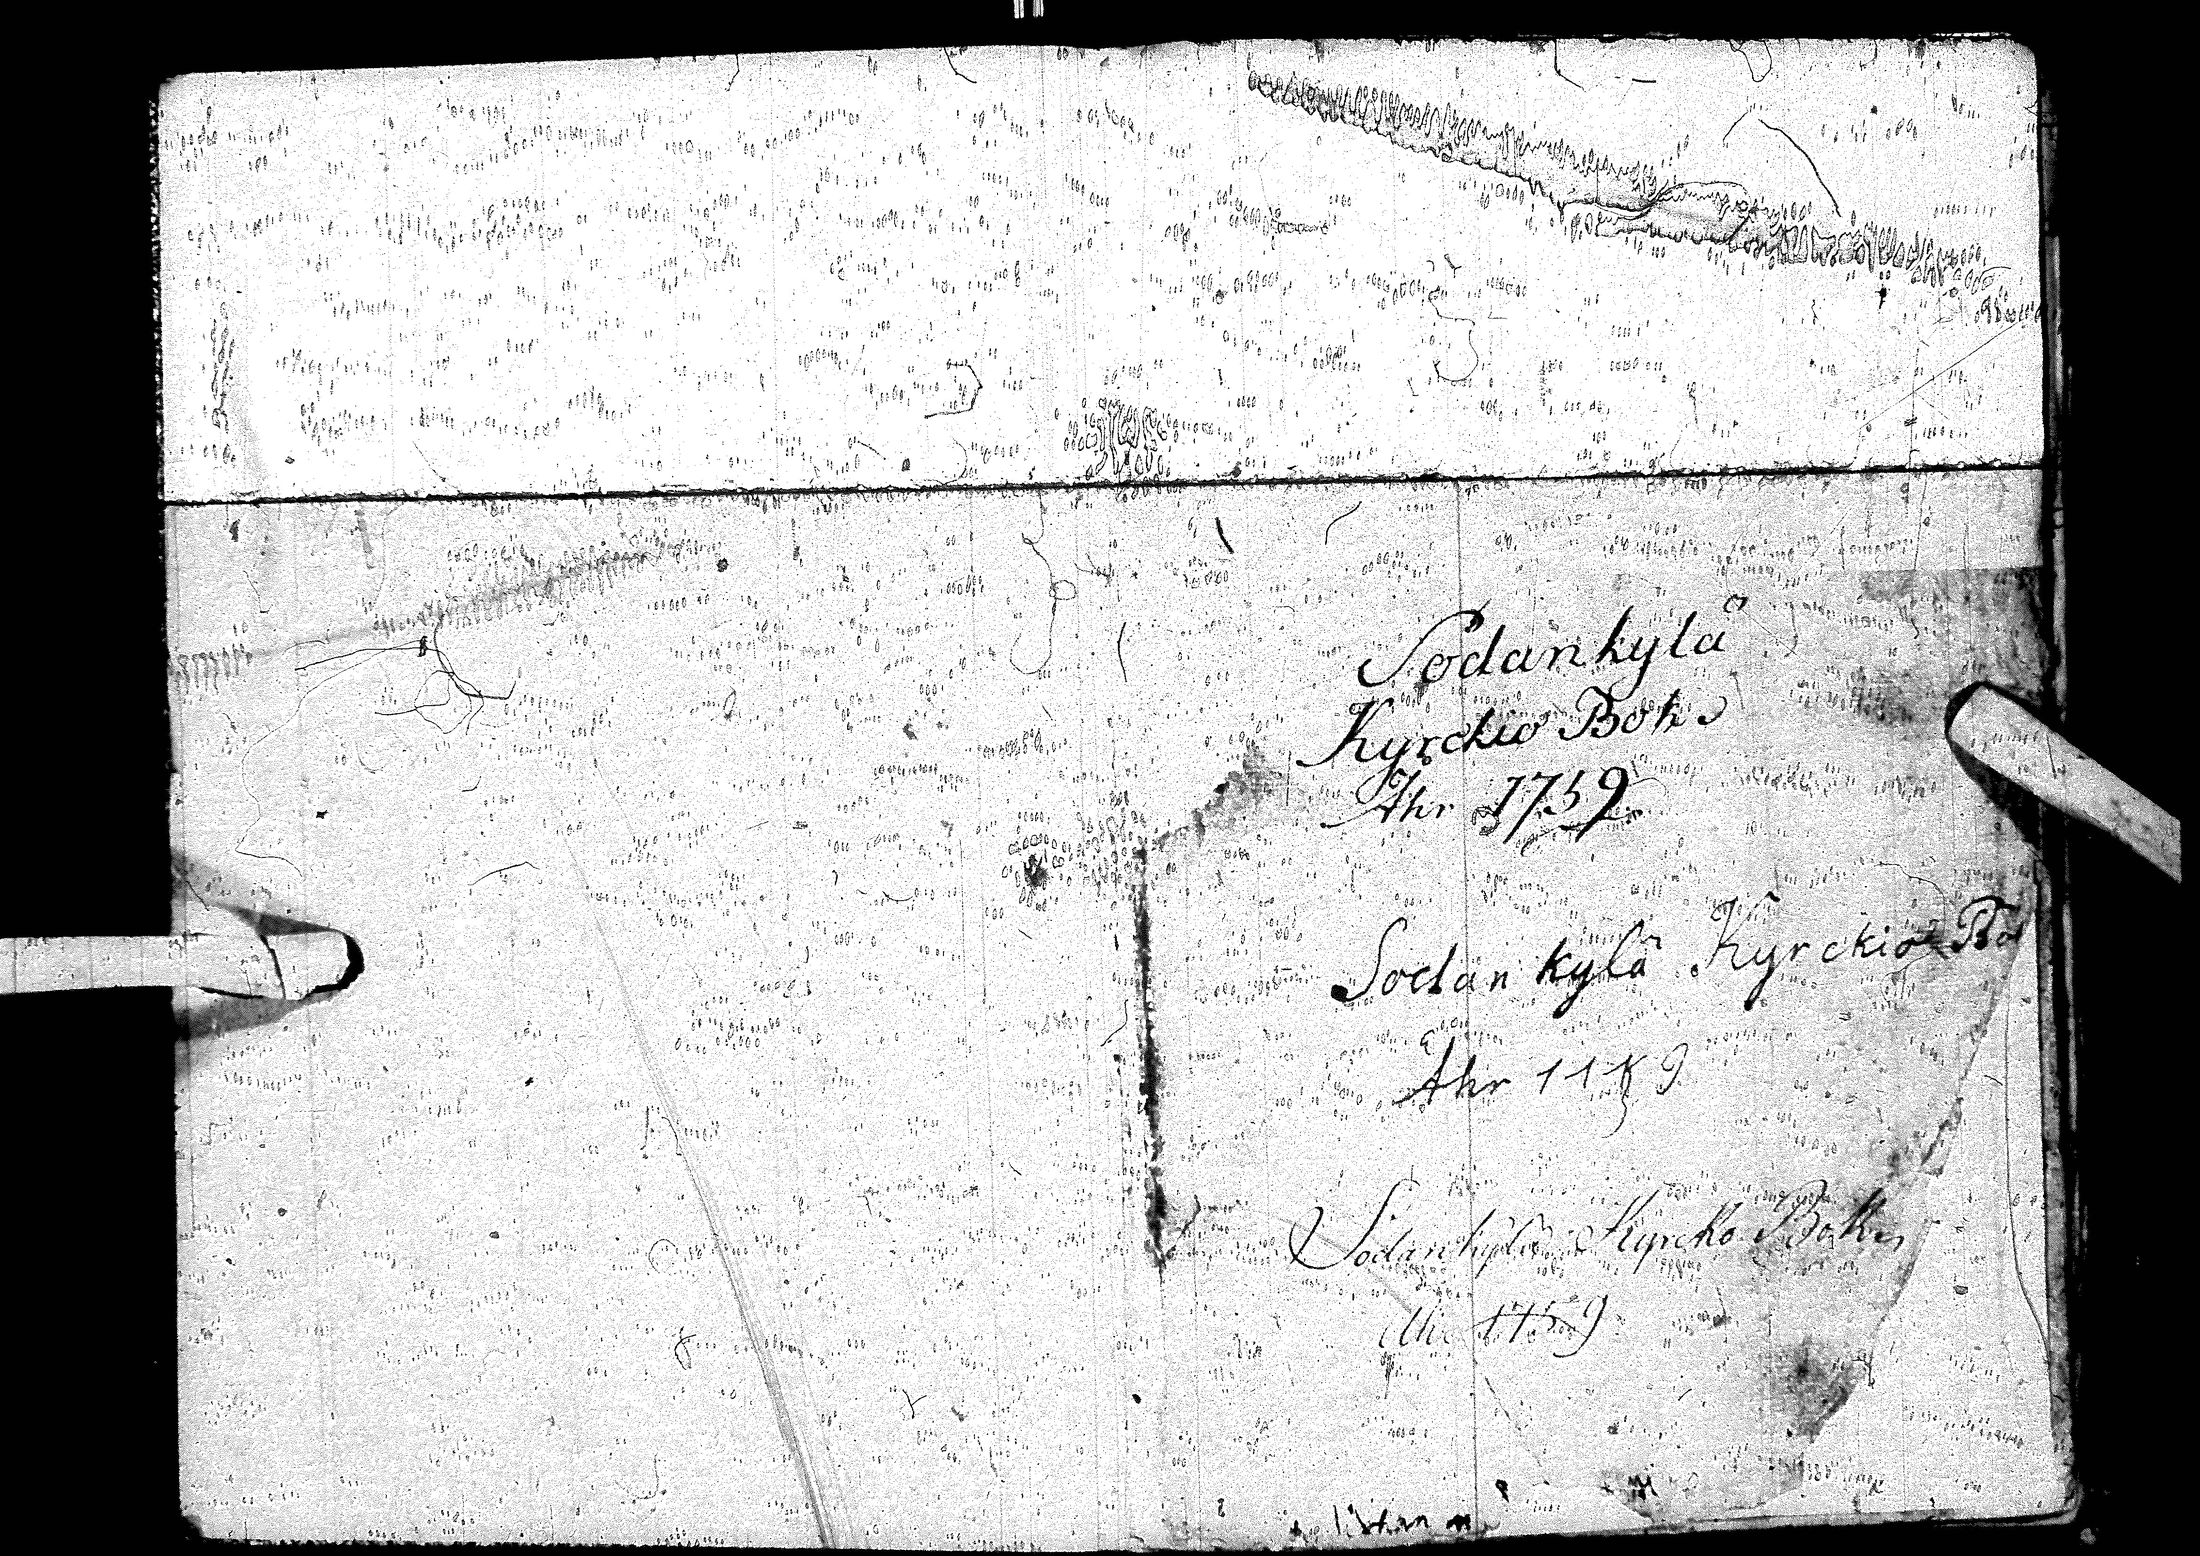 Sodankylå
Kyrckio Bok
Åhr 1759
Sodankylå Kyrckio Bo
Åhr 1759
Sodankylå Kyrcko Bok
1759